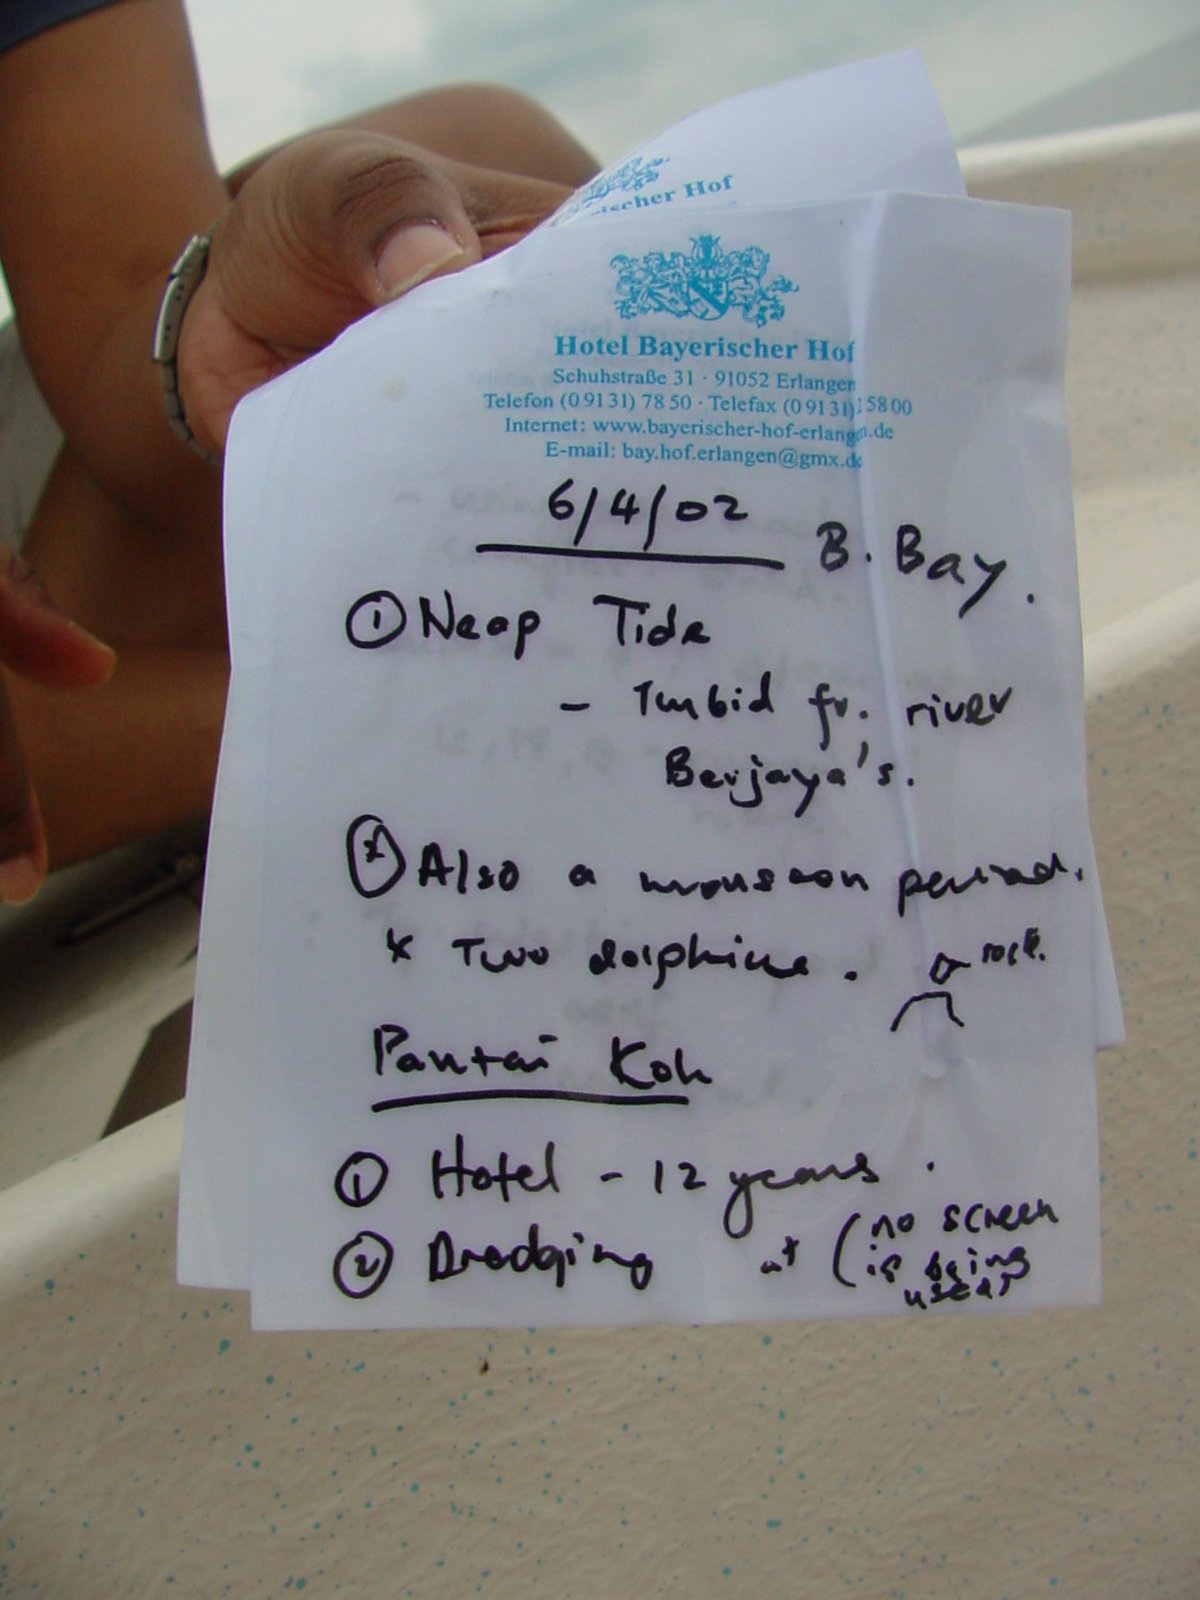 ischer Hof
Hotel Bayerischer Hof
Schuhstraße 31 · 91052 Erlangen
Telefon (0 91 31) 78 50 · Telefax (0 91 31) 2 58 00
Internet: www.bayerischer-hof-erlangen.de
E-mail: bay.hof.erlangen@gmx.de
6/4/02 B. Bay.
① Neap Tide
- Turbid fr. river
Berjaya's.
Also a monsoon period.
* Two dolphins.
rock.
Pantai Kok
① Hotel - 12 years.
② Dredging at (no screen
is being
used)